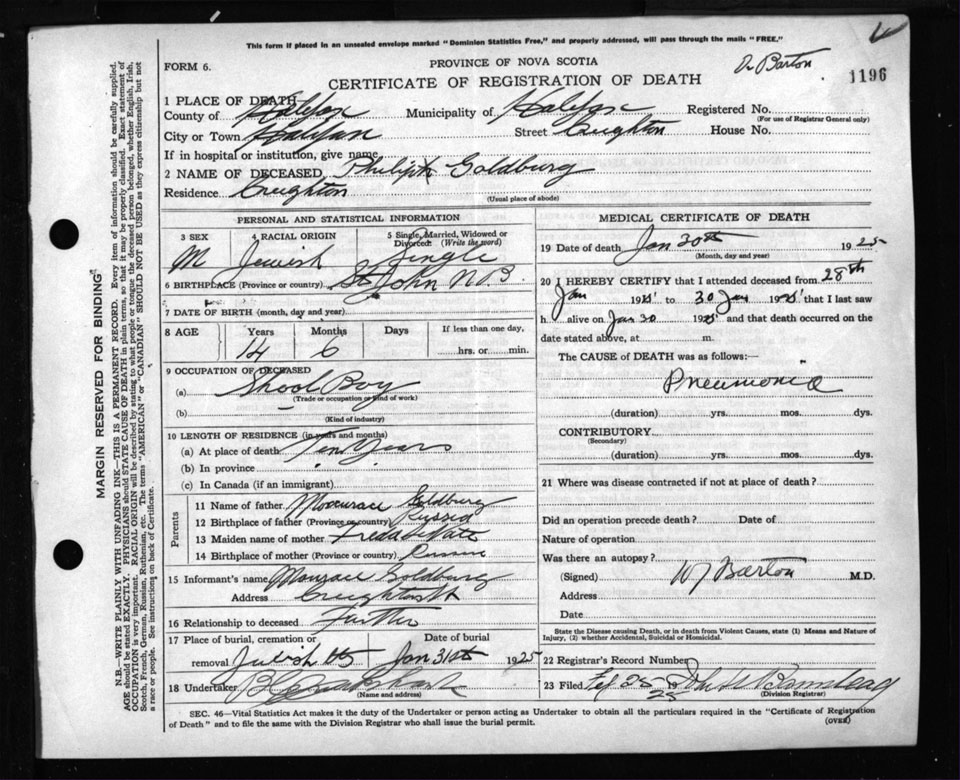 This form if placed in an unsealed envelope marked "Dominion Statistics Free," and properly addressed, will pass through the mails "FREE."
FORM 6.
PROVINCE OF NOVA SCOTIA
CERTIFICATE OF REGISTRATION OF DEATH
Dr Barton
1196
1 PLACE OF DEATH
County of Halifax Municipality of Halifax Registered No.
(For use of Registrar General only)
City or Town Halifax Street Creighton House No.
If in hospital or institution, give name
2 NAME OF DECEASED Philip Goldburg
Residence Creighton
(Usual place of abode)
PERSONAL AND STATISTICAL INFORMATION
3 SEX 4 RACIAL ORIGIN 5 Single, Married, Widowed or Divorced: (Write the word)
M Jewish Single
6 BIRTHPLACE (Province or country) St John N.B
7 DATE OF BIRTH (month, day and year)
8 AGE Years Months Days If less than one day,
14 6 hrs. or min.
9 OCCUPATION OF DECEASED
(a) Shool Boy
(Trade or occupation or kind of work)
(b)
(Kind of industry)
10 LENGTH OF RESIDENCE (in years and months)
(a) At place of death Ten Years
(b) In province
(c) In Canada (if an immigrant)
Parents
11 Name of father Goldburg
12 Birthplace of father (Province or country) Russia
13 Maiden name of mother
14 Birthplace of mother (Province or country) Russia
15 Informant's name Goldburg
Address Creighton St
16 Relationship to deceased Father
17 Place of burial, cremation or removal Date of burial
Jan 31st 1925
18 Undertaker
Name and address
MEDICAL CERTIFICATE OF DEATH
19 Date of death Jan 30th 1925
(Month, day and year)
20 I HEREBY CERTIFY that I attended deceased from 28th
Jan 1925 to 30 Jan 1925 that I last saw
h alive on Jan 30 1925 and that death occurred on
date stated above, at m.
The CAUSE of DEATH was as follows:—
Pneumonia
(duration) yrs. mos. dys.
CONTRIBUTORY
(Secondary)
(duration) yrs. mos. dys.
21 Where was disease contracted if not at place of death?
Did an operation precede death? Date of
Nature of operation
Was there an autopsy?
(Signed) W J Barton M.D.
Address
Date
State the Disease causing Death, or in death from Violent Causes, state (1) Means and Nature of Injury, (2) whether Accidental, Suicidal or Homicidal.
22 Registrar's Record Number
23 Filed Feb 25
(Division Registrar)
SEC. 46—Vital Statistics Act makes it the duty of the Undertaker or person acting as Undertaker to obtain all the particulars required in the "Certificate of Registration
of Death" and to file the same with the Division Registrar who shall issue the burial permit.
(OVER)
MARGIN RESERVED FOR BINDING
N.B.—WRITE PLAINLY WITH UNFADING INK—THIS IS A PERMANENT RECORD. Every item of information should be carefully supplied.
AGE should be stated EXACTLY. PHYSICIANS should STATE CAUSE OF DEATH in plain terms, so that it may be properly classified. Exact statement of
OCCUPATION is very important. RACIAL ORIGIN will be described by stating to what people or tongue the deceased person belonged, whether English, Irish,
Scotch, French, German, Russian, Ruthenian, etc. The terms "AMERICAN" or "CANADIAN" SHOULD NOT BE USED as they express citizenship but not
a race or people. See instructions on back of Certificate.